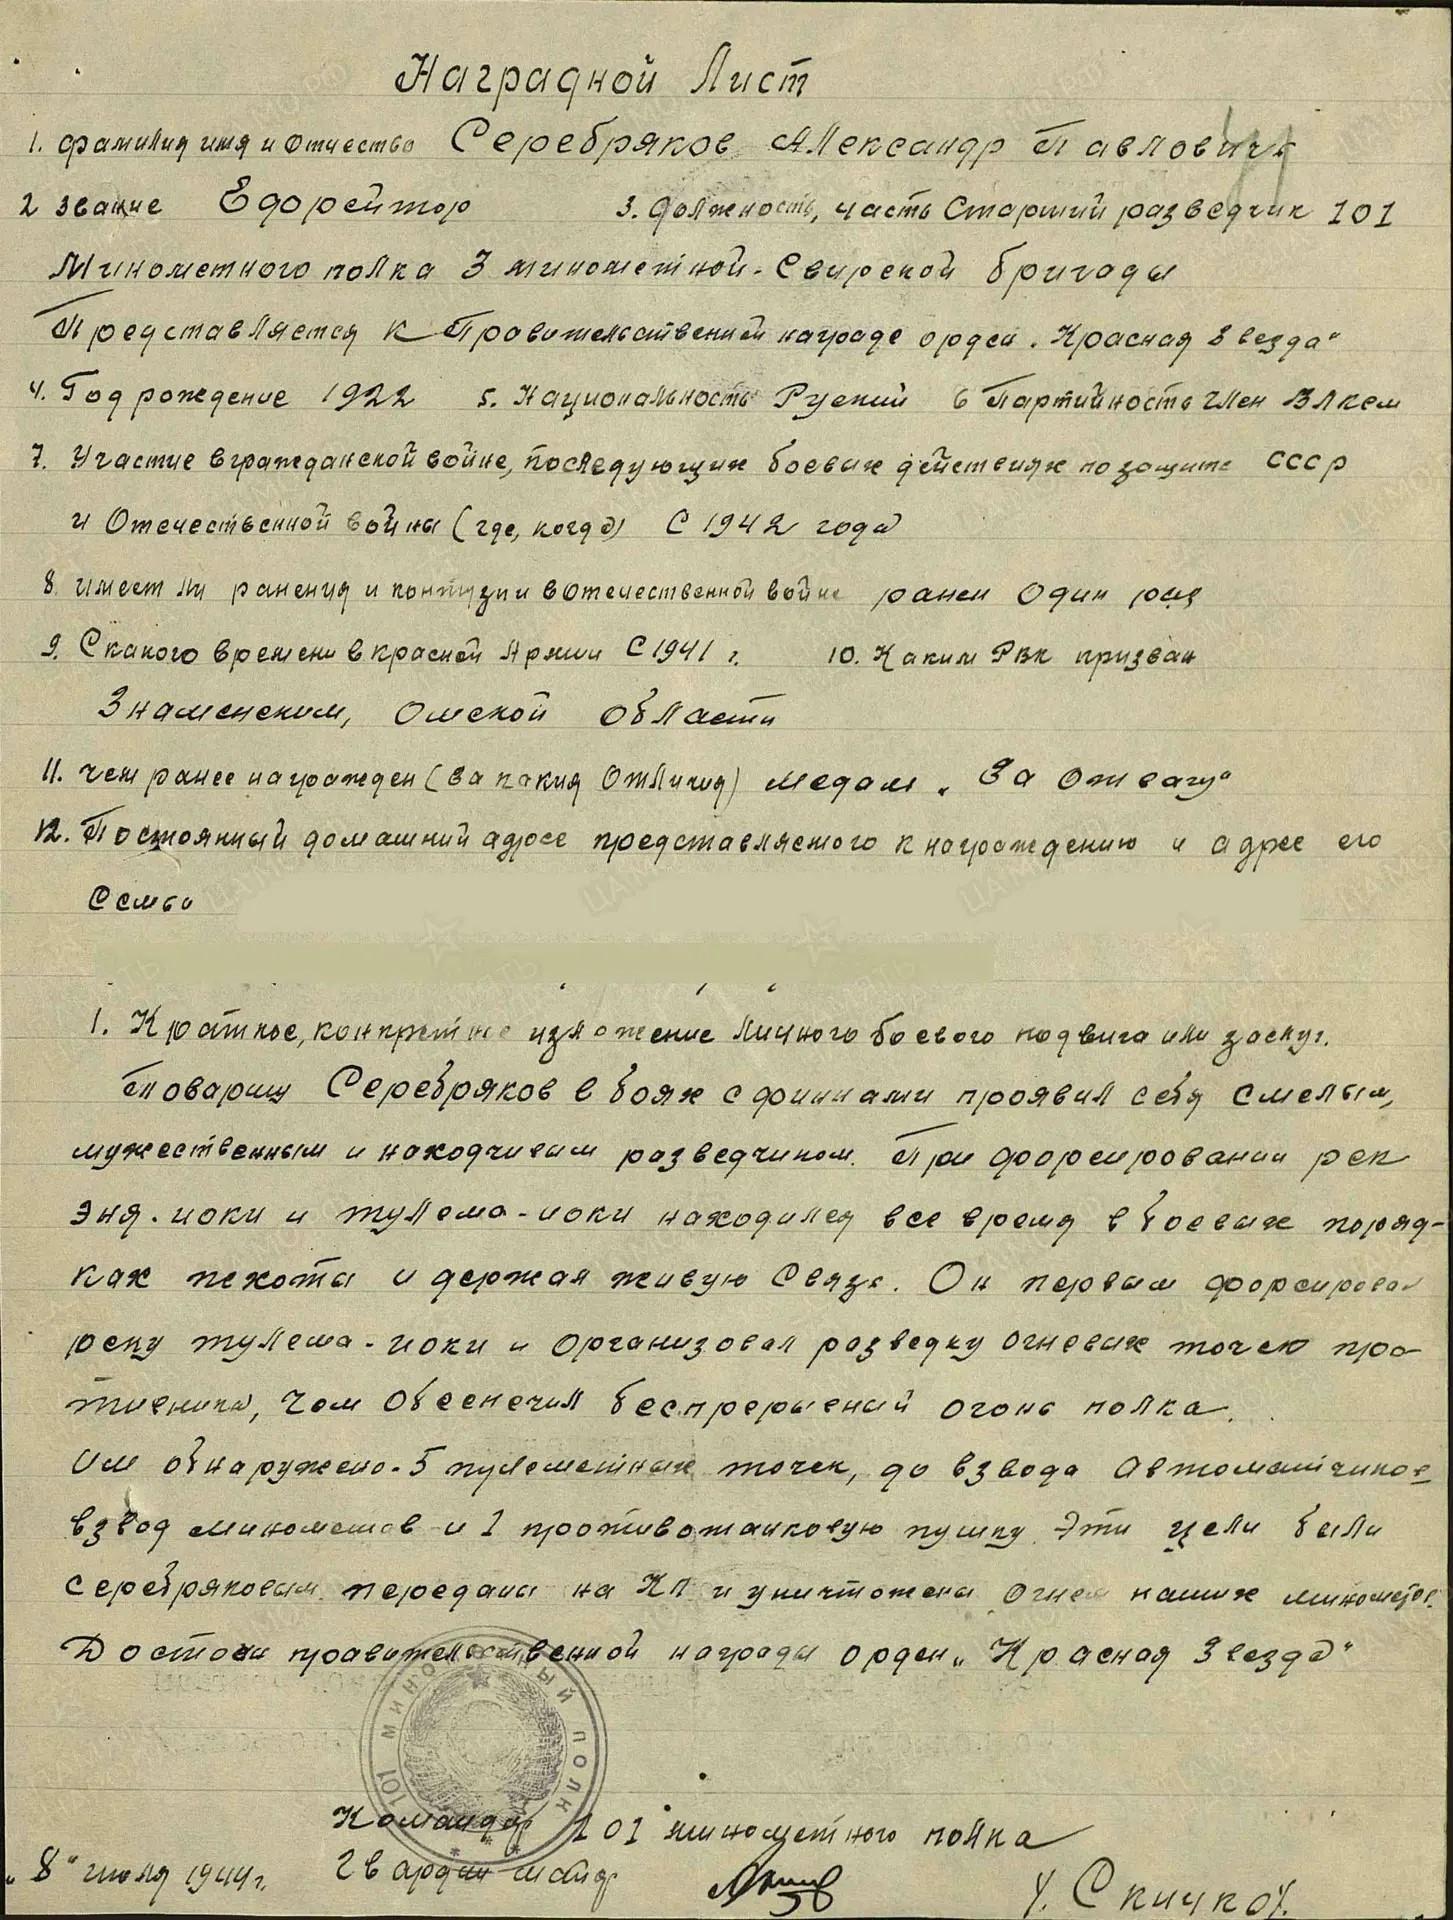 Наградной Лист
1. фамилия имя и отчество Серебряков Александр Павлович
2 звание Ефрейтор 3. должность, часть Старший разведчик 101
Минометного полка 3 минометной-Свирской бригады
Представляется к Правительственной награде орден „Красная Звезда"
4. Год рождение 1922 5. Национальность Руский 6 Партийность член ВЛКСМ
7. Участие в гражданской войне, последующих боевых действиях по защите СССР
и Отечественной войны (где, когда) С 1942 года
8. имеет ли ранения и контузии в отечественной войне ранен один раз
9. С какого времени в красной Армии С 1941 г. 10. Каким РВК призван
Знаменским, Омской области
11. чем ранее награжден (за какия отличия) медаль „За отвагу"
12. Постоянный домашний адрес представляемого к награждению и адрес его
семьи
1. Краткое, конкретное изложение личного боевого подвига или заслуг.
Товарищ Серебряков в боях с финнами проявил себя смелым,
мужественным и находчивым разведчиком. При форсировании рек
Эня-иоки и тулема-иоки находился все время в боевых поряд-
ках пехоты и держал живую связь. Он первым форсировал
реку тулема-иоки и организовал разведку огневых точек про-
тивника, чем обеспечил беспрерывный огонь полка.
Им обнаружено-5 пулеметных точек, до взвода автоматчиков
взвод минометов и 1 противотанковую пушку. Эти цели были
серебряковым переданы на КП и уничтожены огнем наших минометов.
Достоин правительственной награды орден „Красная Звезда"
101 МИНОМЕТНЫЙ ПОЛК
Командир 101 минометного полка
„8" июля 1944 г. Гвардии майор /. Скичко/.
ЦАМО
ПАМЯТЬ